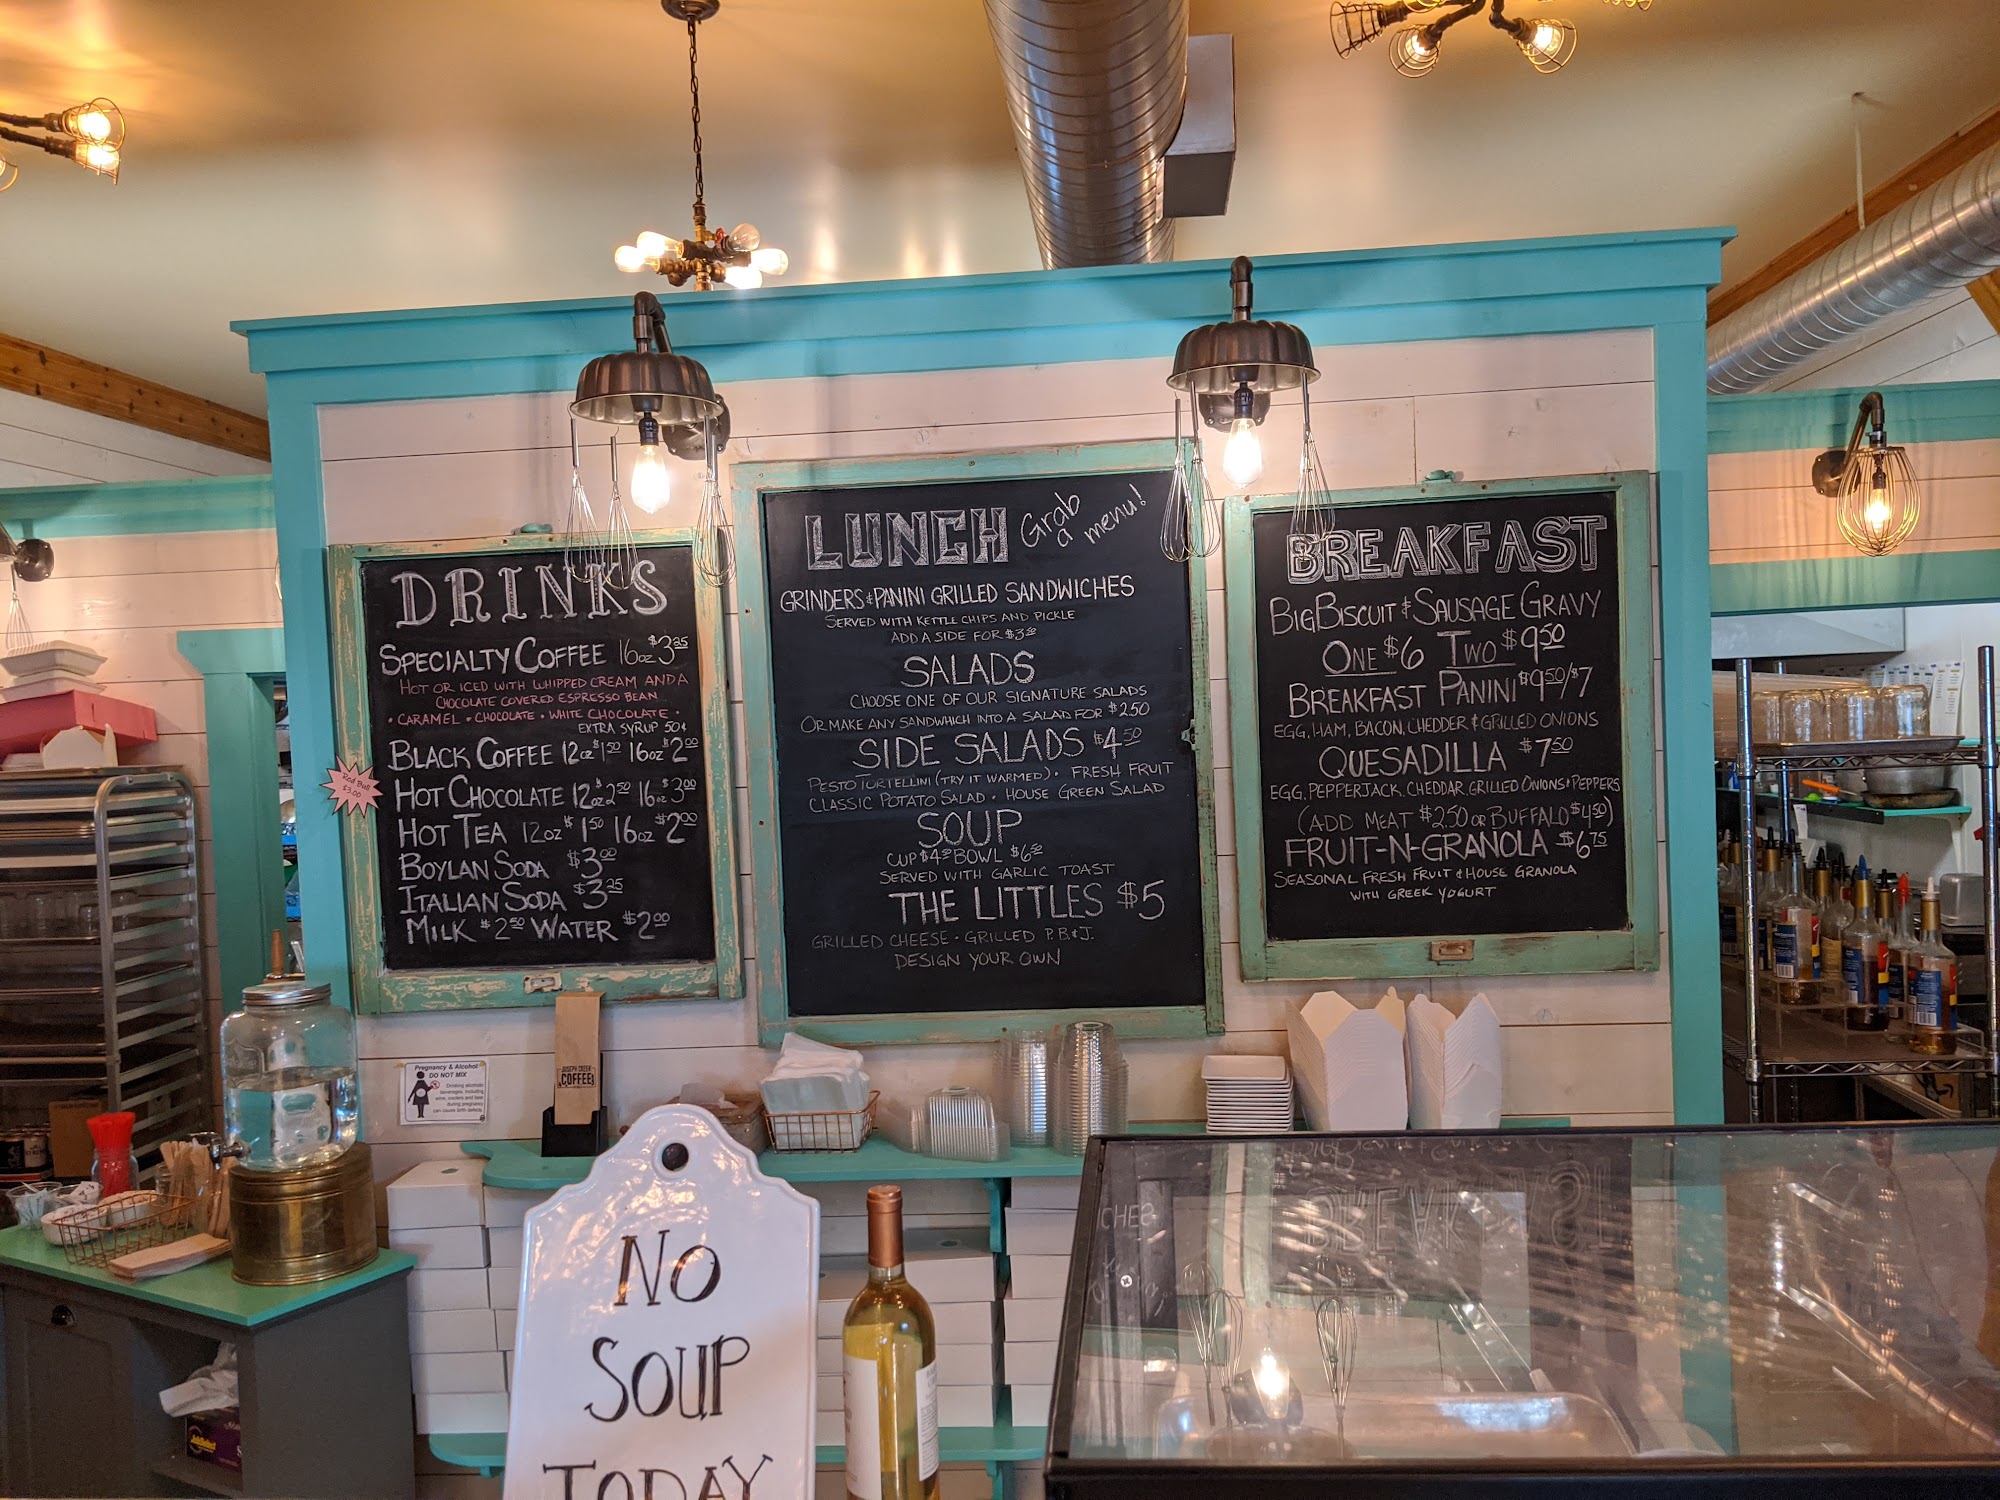 DRINKS
SPECIALTY COFFEE 16oz $3.25
HOT OR ICED WITH WHIPPED CREAM AND A
CHOCOLATE COVERED ESPRESSO BEAN
• CARAMEL • CHOCOLATE • WHITE CHOCOLATE •
EXTRA SYRUP 50¢
BLACK COFFEE 12oz $1.50 16oz $2.00
HOT CHOCOLATE 12oz $2.50 16oz $3.00
HOT TEA 12oz $1.50 16oz $2.00
BOYLAN SODA $3.00
ITALIAN SODA $3.25
MILK $2.50 WATER $2.00
Red Bull
$3.00
LUNCH Grab
a menu!
GRINDERS & PANINI GRILLED SANDWICHES
SERVED WITH KETTLE CHIPS AND PICKLE
ADD A SIDE FOR
SALADS
CHOOSE ONE OF OUR SIGNATURE SALADS
OR MAKE ANY SANDWHICH INTO A SALAD FOR $2.50
SIDE SALADS $4.50
PESTO TORTELLINI (TRY IT WARMED) • FRESH FRUIT
CLASSIC POTATO SALAD • HOUSE GREEN SALAD
SOUP
CUP $4.50 BOWL $6.50
SERVED WITH GARLIC TOAST
THE LITTLES $5
GRILLED CHEESE • GRILLED P.B.&J.
DESIGN YOUR OWN
BREAKFAST
BIG BISCUIT & SAUSAGE GRAVY
ONE $6 TWO $9.50
BREAKFAST PANINI $9.50/$7
EGG, HAM, BACON, CHEDDER & GRILLED ONIONS
QUESADILLA $7.50
EGG, PEPPERJACK, CHEDDAR, GRILLED ONIONS & PEPPERS
(ADD MEAT $2.50 OR BUFFALO $4.50)
FRUIT-N-GRANOLA $6.75
SEASONAL FRESH FRUIT & HOUSE GRANOLA
WITH GREEK YOGURT
Pregnancy & Alcohol
DO NOT MIX
Drinking alcoholic
beverages, including
wine, coolers and beer
during pregnancy
can cause birth defects.
JOSEPH CREEK
COFFEE
NO
SOUP
TODAY